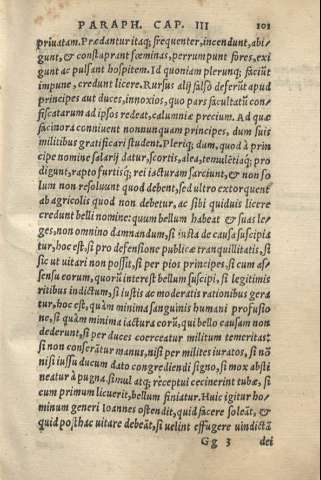 PARAPH. CAP. III 101
priuatam. Prædantur itaq; frequenter, incendunt, abi-
gunt, & constaprant fœminas, perrumpunt fores, exi
gunt ac pulsant hospitem. Id quoniam plerunq; faciũt
impune, credunt licere. Rursus alij falso deferũt apud
principes aut duces, innoxios, quo pars facultatũ con-
fiscatarum ad ipsos redeat, calumniæ precium. Ad quæ
facinora conniuent nonnunquam principes, dum suis
militibus gratificari student. Pleriq; dum, quod à prin
cipe nomine salarij datur, scortis, alea, temulẽtiaq; pro
digunt, rapto furtisq; rei iacturam sarciunt, & non so
lum non resoluunt quod debent, sed ultro extorquent
ab agricolis quod non debetur, ac sibi quiduis licere
credunt belli nomine: quum bellum habeat & suas le-
ges, non omnino damnandum, si iusta de causa suscipia
tur, hoc est, si pro defensione publicæ tranquillitatis, si
sic ut uitari non possit, si per pios principes, si cum as-
sensu eorum, quorũ interest bellum suscipi, si legitimis
ritibus indictum, si iustis ac moderatis rationibus gera
tur, hoc est, quàm minima sanguinis humani profusio
ne, si quàm minima iactura eorũ, qui bello causam non
dederunt, si per duces coerceatur militum temeritas:
si non conserãtur manus, nisi per milites iuratos, si nõ
nisi iussu ducum dato congrediendi signo, si mox absti
neatur à pugna, simul atq; receptui cecinerint tubæ, si
cum primum licuerit, bellum finiatur. Huic igitur ho-
minum generi Ioannes ostendit, quid facere soleãt, &
quid posthac uitare debeãt, si uelint effugere uindictã
Gg 3 dei